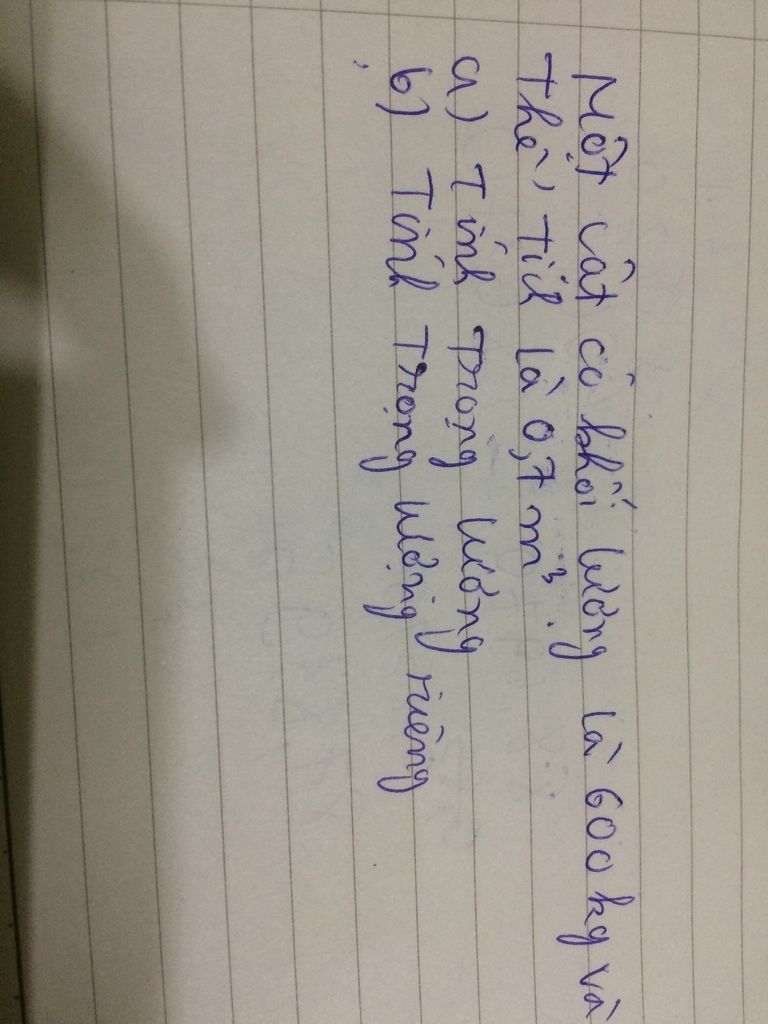 Một vật có khối lượng là 600 kg và
Thể tích là 0,7 m³.
a) Tính trọng lượng
b) Tính Trọng lượng riêng